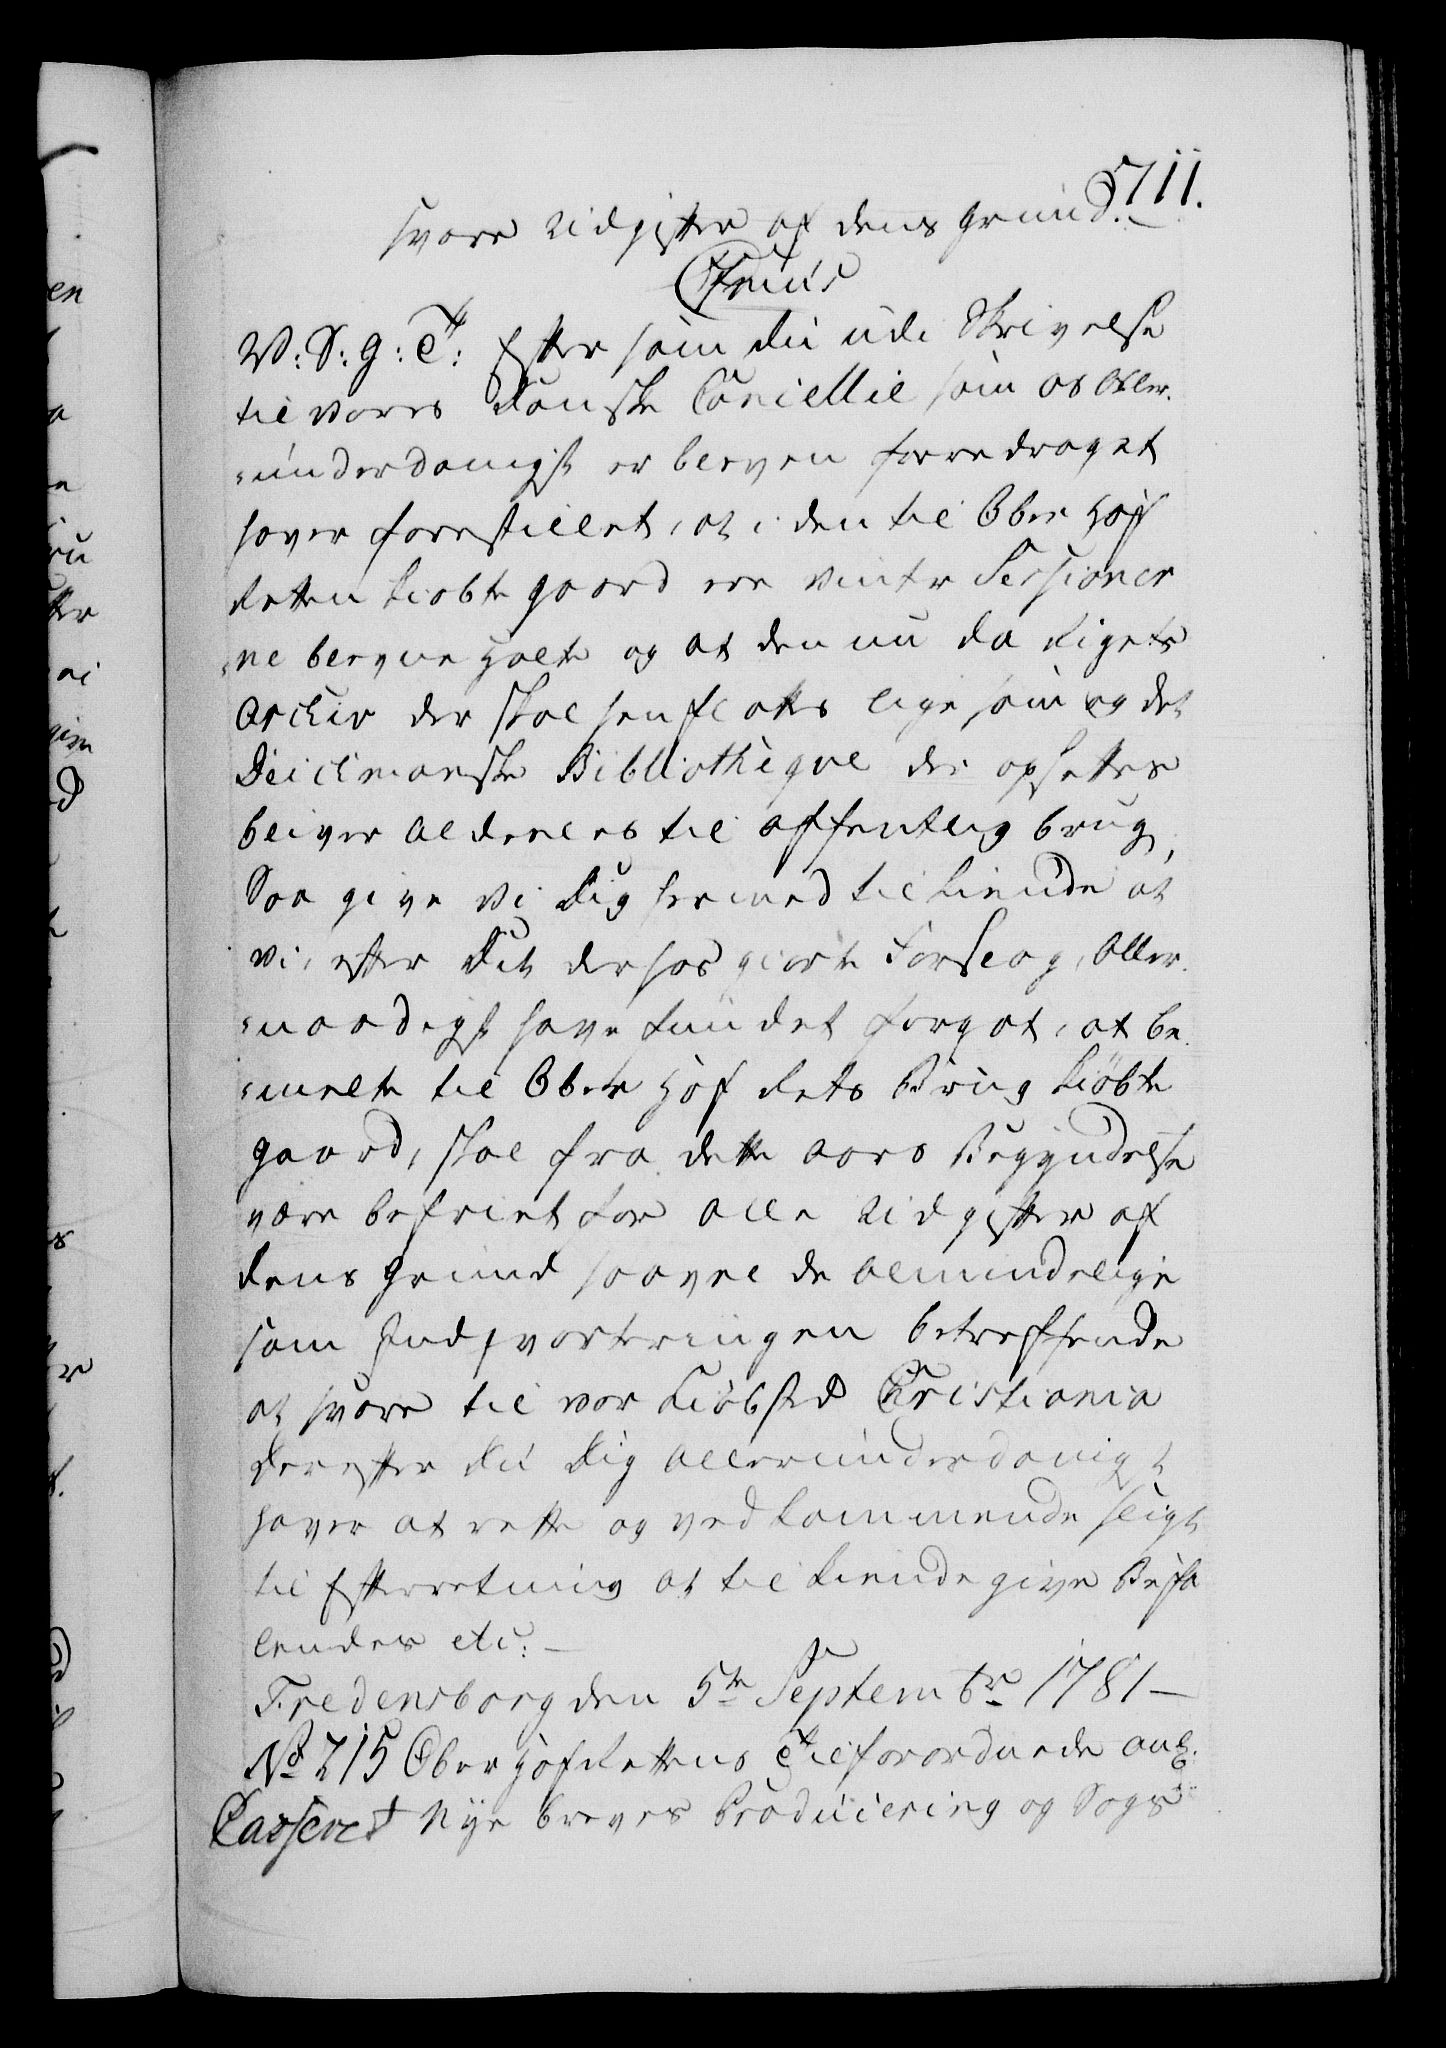 711.
svare Udgifter af dens Grund.
C7mus
W: S: G: T: Eftersom Du udi Skrivelse
til vores Danske Cancellie som os Aller-
=underdanigst er bleven foredraget
haver forestillet, at i den til Ober Hof
Retten kiøbte Gaard ere vinter Sessioner
=ne blevne holte og at den nu da Rigets
Archiv der skal henflottes ligesom og det
Deichmanske Bibliotheqve der opsettes
bliver aldeeles til offentlig brug,
Saa give vi Dig hermed tilkiende at
vi, efter Dit derhos giorte Forslag, Aller-
=naadigst have fundet forgot, at be-
=melte til Ober Hof Rets Brug kiøbte
gaard, skal fra dette aars Begyndelse
være befriet for alle Udgifter af
dens Grund saavel de almindelige
som Indqvarteringen betreffende
at svare til vor Kiøbsted Christiania
Derefter Du Dig allerunderdanigst
haver at rette og vedkommende sligt
til Efterretning at tilkiendegive Befa
lendes etc: —
Fredensborg den 5te Septembr 1781 —
No 215 Ober Hof Rettens Tilforordnede anl.
Casseret Nye breves Producering og Sags